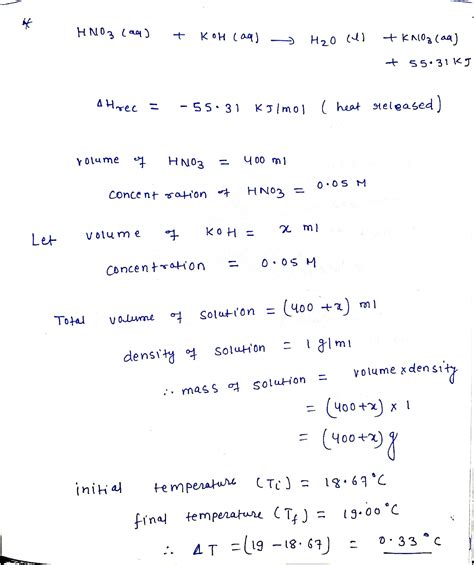 HNO3 (aq) + KOH (aq) → H2O (l) + KNO3 (aq)
+ 55.31 KJ
ΔHrec = -55.31 KJ/mol ( heat released)
volume of HNO3 = 400 ml
concentration of HNO3 = 0.05 M
Let volume of KOH = x ml
concentration = 0.05 M
Total volume of solution = (400 + x) ml
density of solution = 1 g/ml
∴ mass of solution = volume x density
= (400+x) x 1
= (400+x) g
initial temperature (Ti) = 18.67°C
final temperature (Tf) = 19.00°C
∴ ΔT = (19 - 18.67) = 0.33 °C